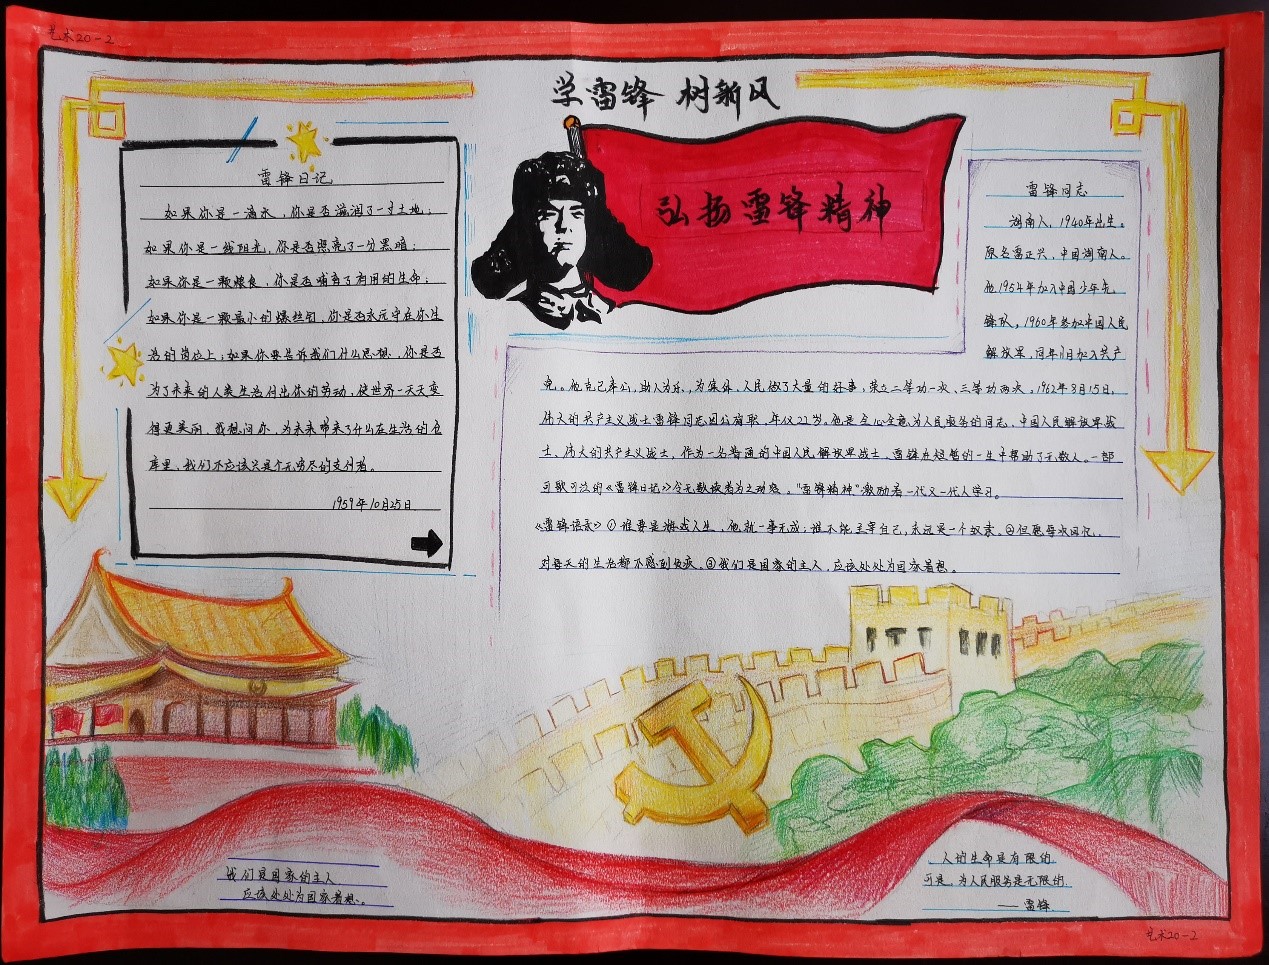 艺术20-2
学雷锋 树新风
弘扬雷锋精神
雷锋日记
如果你是一滴水,你是否滋润了一寸土地;
如果你是一线阳光,你是否照亮了一分黑暗;
如果你是一颗粮食,你是否哺育了有用的生命;
如果你是一颗最小的螺丝钉,你是否永远守在你生
活的岗位上;如果你要告诉我们什么思想,你是否
为了未来的人类生活付出你的劳动,使世界一天天变
得更美丽。我想问你,为未来带来了什么在生活的仓
库里,我们不应该只是个无穷尽的支付者。
1959年10月25日
雷锋同志
湖南人,1940年出生。
原名雷正兴,中国湖南人。
他1954年加入中国少年先
锋队,1960年参加中国人民
解放军,同年11月加入共产
党。他克己奉公,助人为乐,为集体、人民做了大量的好事,荣立二等功一次、三等功两次。1962年8月15日,
伟大的共产主义战士雷锋同志因公殉职,年仅22岁。他是全心全意为人民服务的同志,中国人民解放军战
士、伟大的共产主义战士,作为一名普通的中国人民解放军战士,雷锋在短暂的一生中帮助了无数人。一部
可歌可泣的《雷锋日记》令无数读者为之动容。"雷锋精神"激励着一代又一代人学习。
《雷锋语录》①谁要是游戏人生,他就一事无成;谁不能主宰自己,永远是一个奴隶。②但愿每次回忆,
对每天的生活都不感到负疚。③我们是国家的主人,应该处处为国家着想。
我们是国家的主人
应该处处为国家着想。
人的生命是有限的
可是,为人民服务是无限的.
——雷锋
艺术20-2